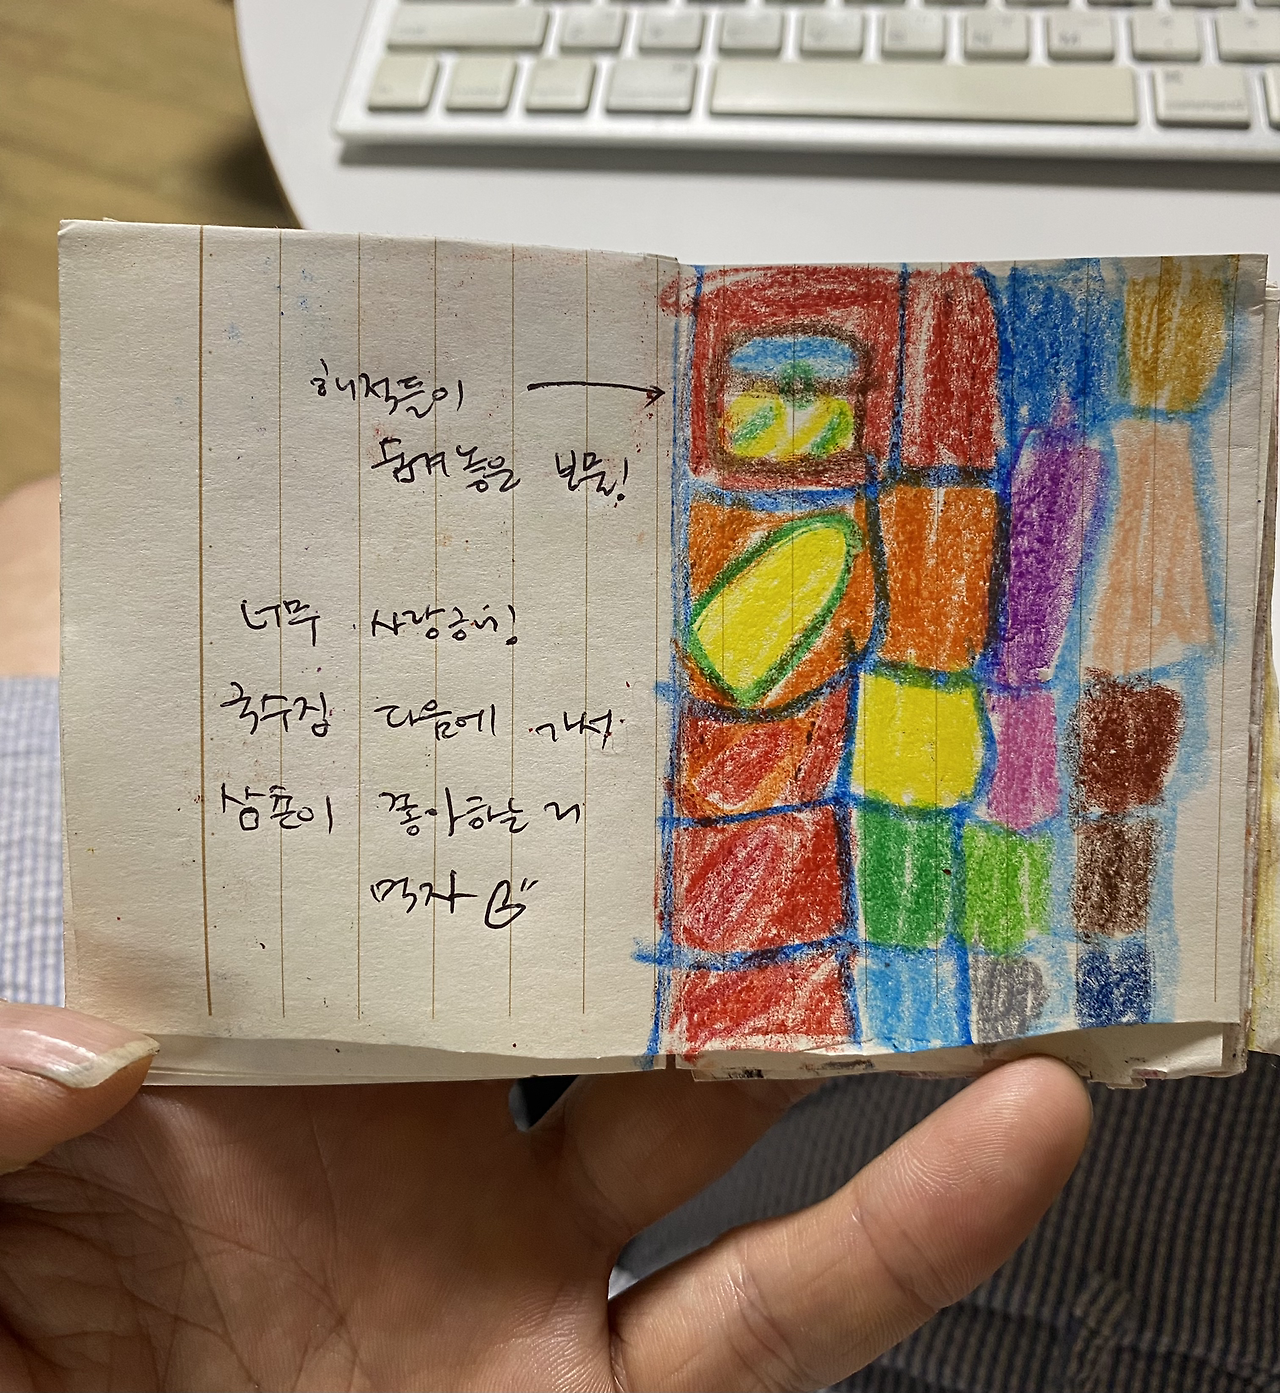 해적들이
숨겨 놓은 보물!
너무 사랑하넹
국수집 다음에 가서
삼촌이 좋아하는 거
먹자
command